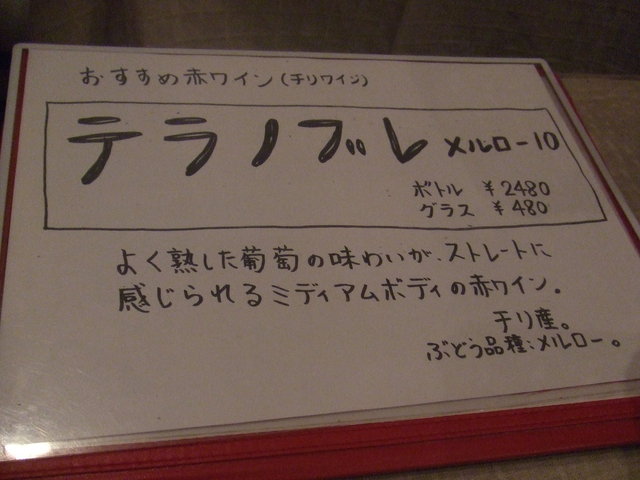 おすすめ赤ワイン(チリワイン)
テラノブレ メルロー10
ボトル ¥2480
グラス ¥480
よく熟した葡萄の味わいが、ストレートに
感じられるミディアムボディの赤ワイン。
チリ産。
ぶどう品種:メルロー。